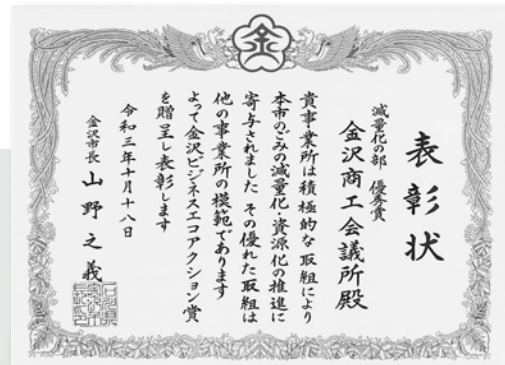 金
表彰状
減量化の部 優秀賞
金沢商工会議所殿
貴事業所は積極的な取組により
本市のごみの減量化・資源化の推進に
寄与されました その優れた取組は
他の事業所の模範であります
よって金沢ビジネスエコアクション賞
を贈呈し表彰します
令和三年十月十八日
金沢市長 山野之義